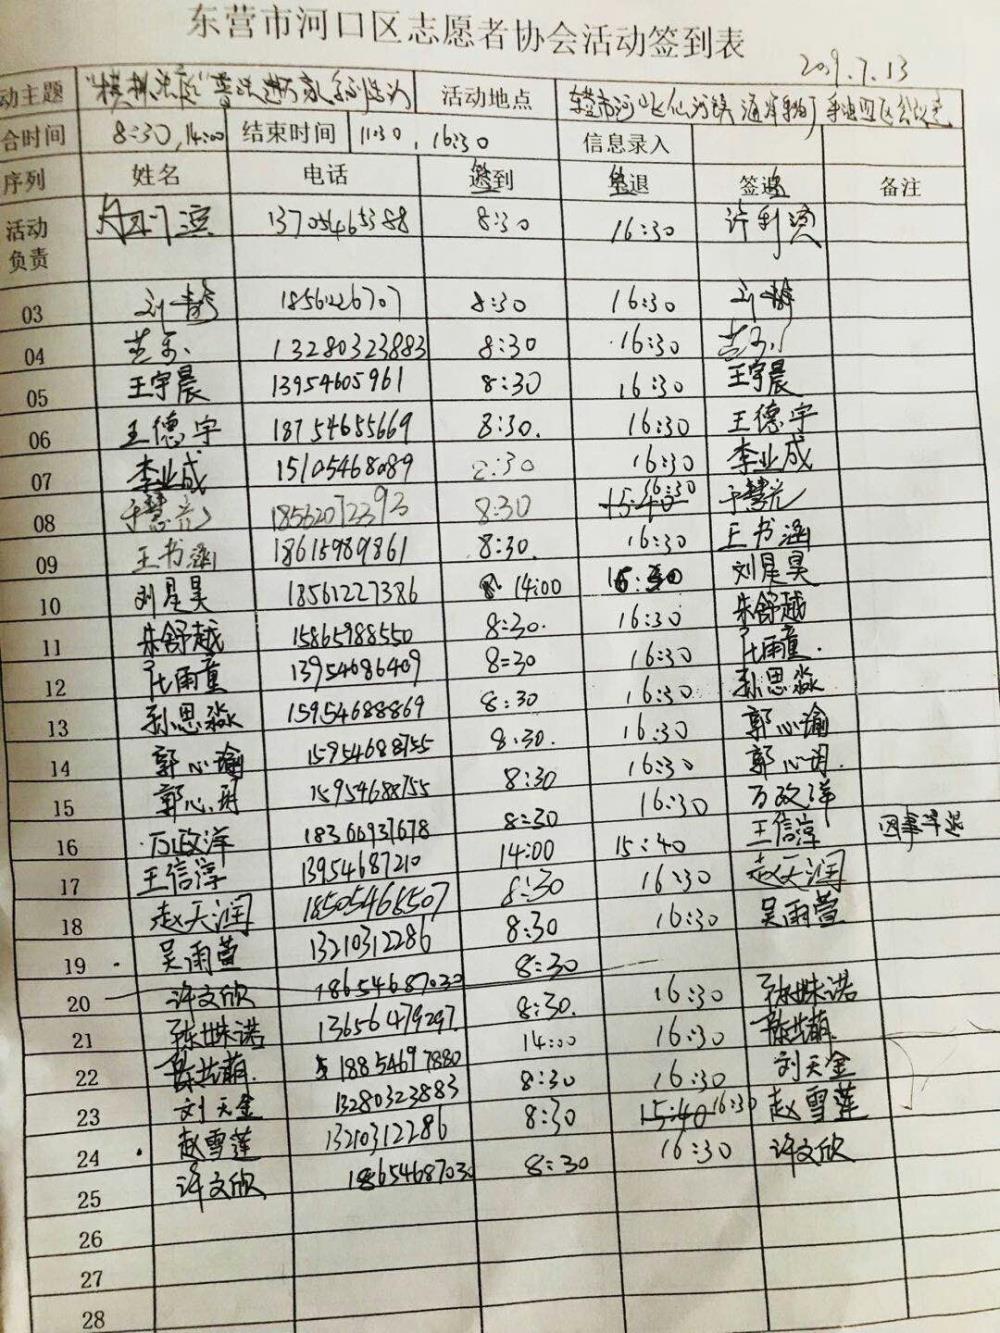 东营市河口区志愿者协会活动签到表
2019.7.13
动主题 "模拟法庭"普法进万家系列活动 活动地点 东营市河口区仙河镇
合时间 8:30,14:00 结束时间 11:30,16:30 信息录入
序列 姓名 电话 签到 签退 签退 备注
活动负责 13705465388 8:30 16:30 许利滨
03 刘静 1856226707 8:30 16:30 刘静
04 13280323883 8:30 16:30
05 王宇晨 13954605961 8:30 16:30 王宇晨
06 王德宇 18754655669 8:30. 16:30 王德宇
07 李业成 15105468089 8:30 16:30 李业成
08 于慧 18562072393 8:30 15:40 16:30 于慧
09 王书涵 18615989861 8:30. 16:30 王书涵
10 刘星昊 18561227386 14:00 16:30 刘星昊
11 朱舒越 15865988550 8:30. 16:30 朱舒越
12 雨童 13954686409 8:30 16:30 雨童.
13 孙思淼 15954688869 8:30 16:30 孙思淼
14 郭心瑜 15954688755 8:30. 16:30 郭心瑜
15 郭心玥 15954688755 8:30 16:30 郭心玥.
16 万政洋 18366937678 8:30 16:30 万政洋
17 王信淳 13954687210 14:00 15:40 王信淳 因事早退
18 赵天润 18505468507 8:30 16:30 赵天润
19 吴雨萱 13210312286 8:30 16:30 吴雨萱
20 许文欣 18654687030 8:30
21 张姝诺 13656479297. 8:30. 16:30 张姝诺
22 陈艺萌. 18854697880 14:00 16:30 陈艺萌.
23 刘天金 13280323883 8:30 16:30 刘天金
24 赵雪莲 13210312286 8:30 15:40 16:30 赵雪莲
25 许文欣 18654687030 8:30 16:30 许文欣
26
27
28